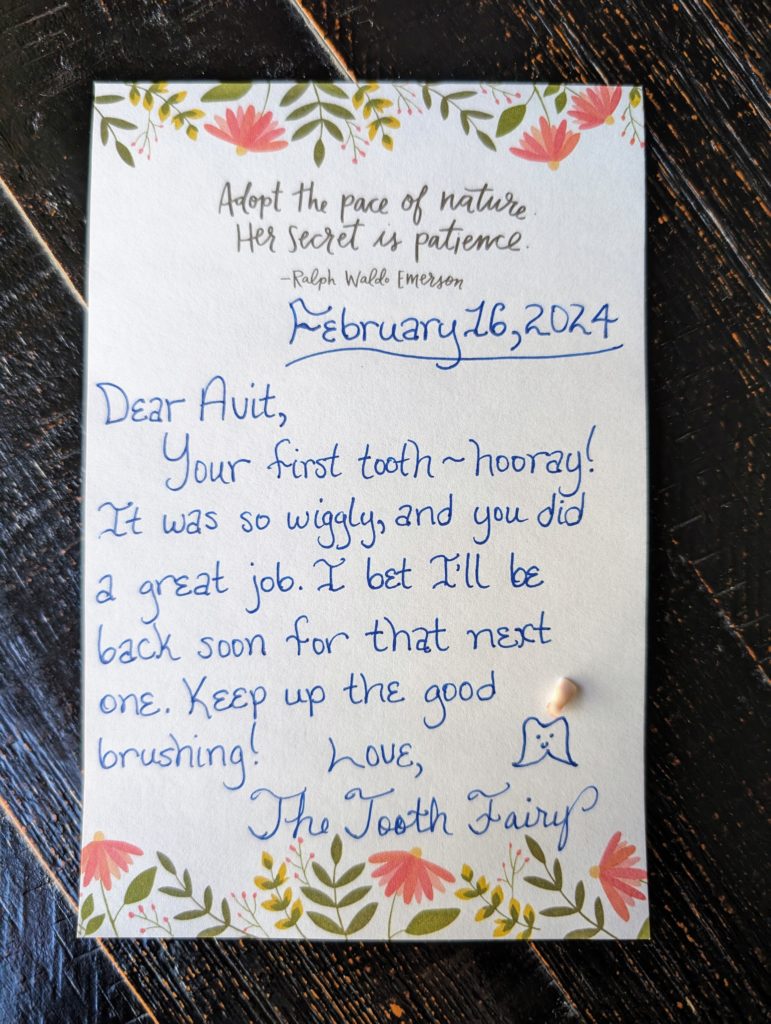 Adopt the pace of nature.
Her secret is patience.
-Ralph Waldo Emerson
February 16, 2024
Dear Avit,
Your first tooth~hooray!
It was so wiggly, and you did
a great job. I bet I'll be
back soon for that next
one. Keep up the good
brushing! Love,
The Tooth Fairy